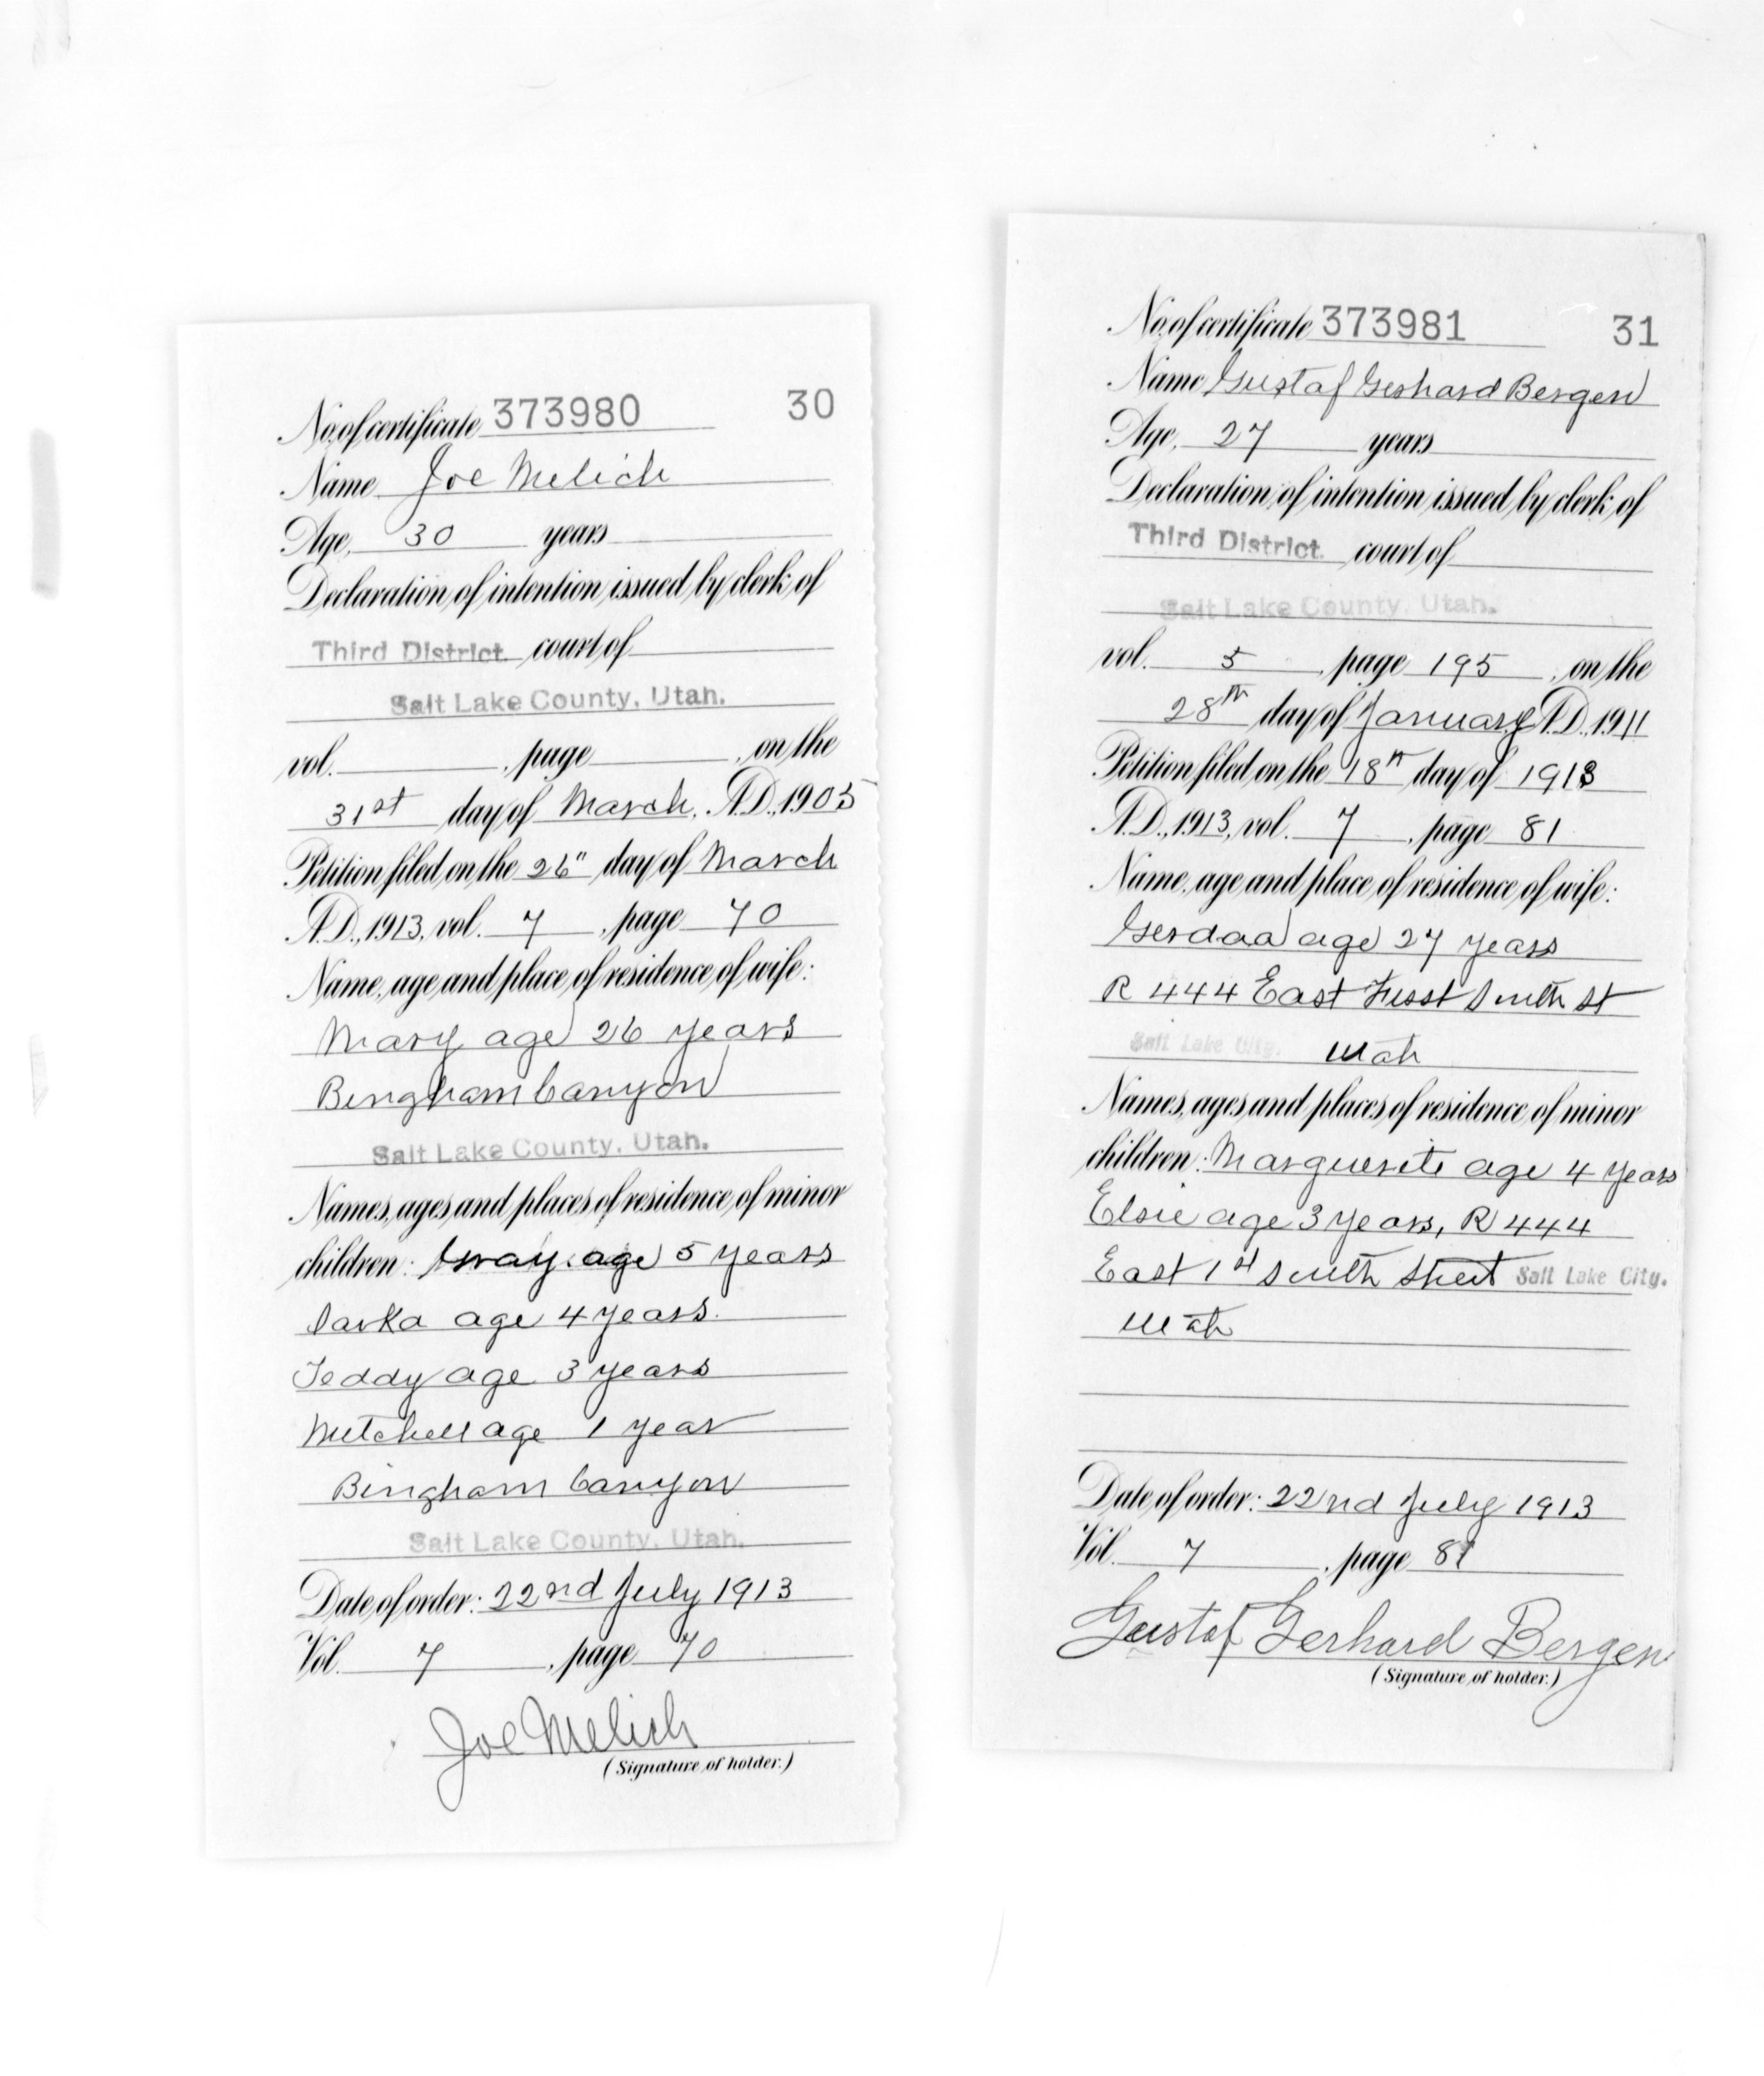 No. of certificate 373980 30
Name Joe Melich
Age, 30 years
Declaration of intention issued by clerk of
Third District court of
Salt Lake County, Utah.
vol. , page , on the
31st day of March, A.D., 1905
Petition filed on the 26" day of March
A.D., 1913, vol. 7, page 70
Name, age and place of residence of wife:
Mary age 26 years
Bingham Canyon
Salt Lake County, Utah.
Names, ages and places of residence of minor
children: age 5 years
age 4 years.
Teddy age 3 years
Mitchell age 1 year
Bingham Canyon
Salt Lake County, Utah.
Date of order: 22nd July 1913
Vol. 7, page 70
Joe Melich
(Signature of holder.)
No. of certificate 373981 31
Name Gustaf Gerhard Bergen
Age, 27 years
Declaration of intention issued by clerk of
Third District. court of
Salt Lake County, Utah.
vol. 5, page 195, on the
28th day of January A.D., 1911
Petition filed on the 18th day of 1913
A.D., 1913, vol. 7, page 81
Name, age and place of residence of wife:
Gerdaa age 27 years
R 444 East First South St
Salt Lake City. Utah
Names, ages and places of residence of minor
children: Marguerite age 4 years
Elsie age 3 years, R 444
East 1st South Street Salt Lake City.
Utah
Date of order: 22nd July 1913
Vol. 7, page 81
Gustaf Gerhard Bergen
(Signature of holder.)